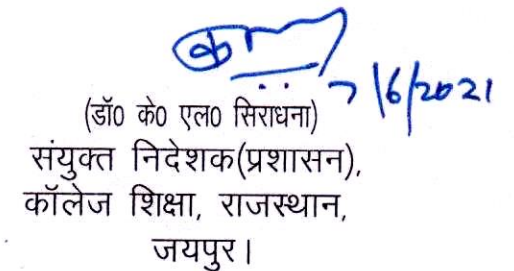 7/6/2021
(डॉ0 के0 एल0 सिराधना)
संयुक्त निदेशक(प्रशासन),
कॉलेज शिक्षा, राजस्थान,
जयपुर।